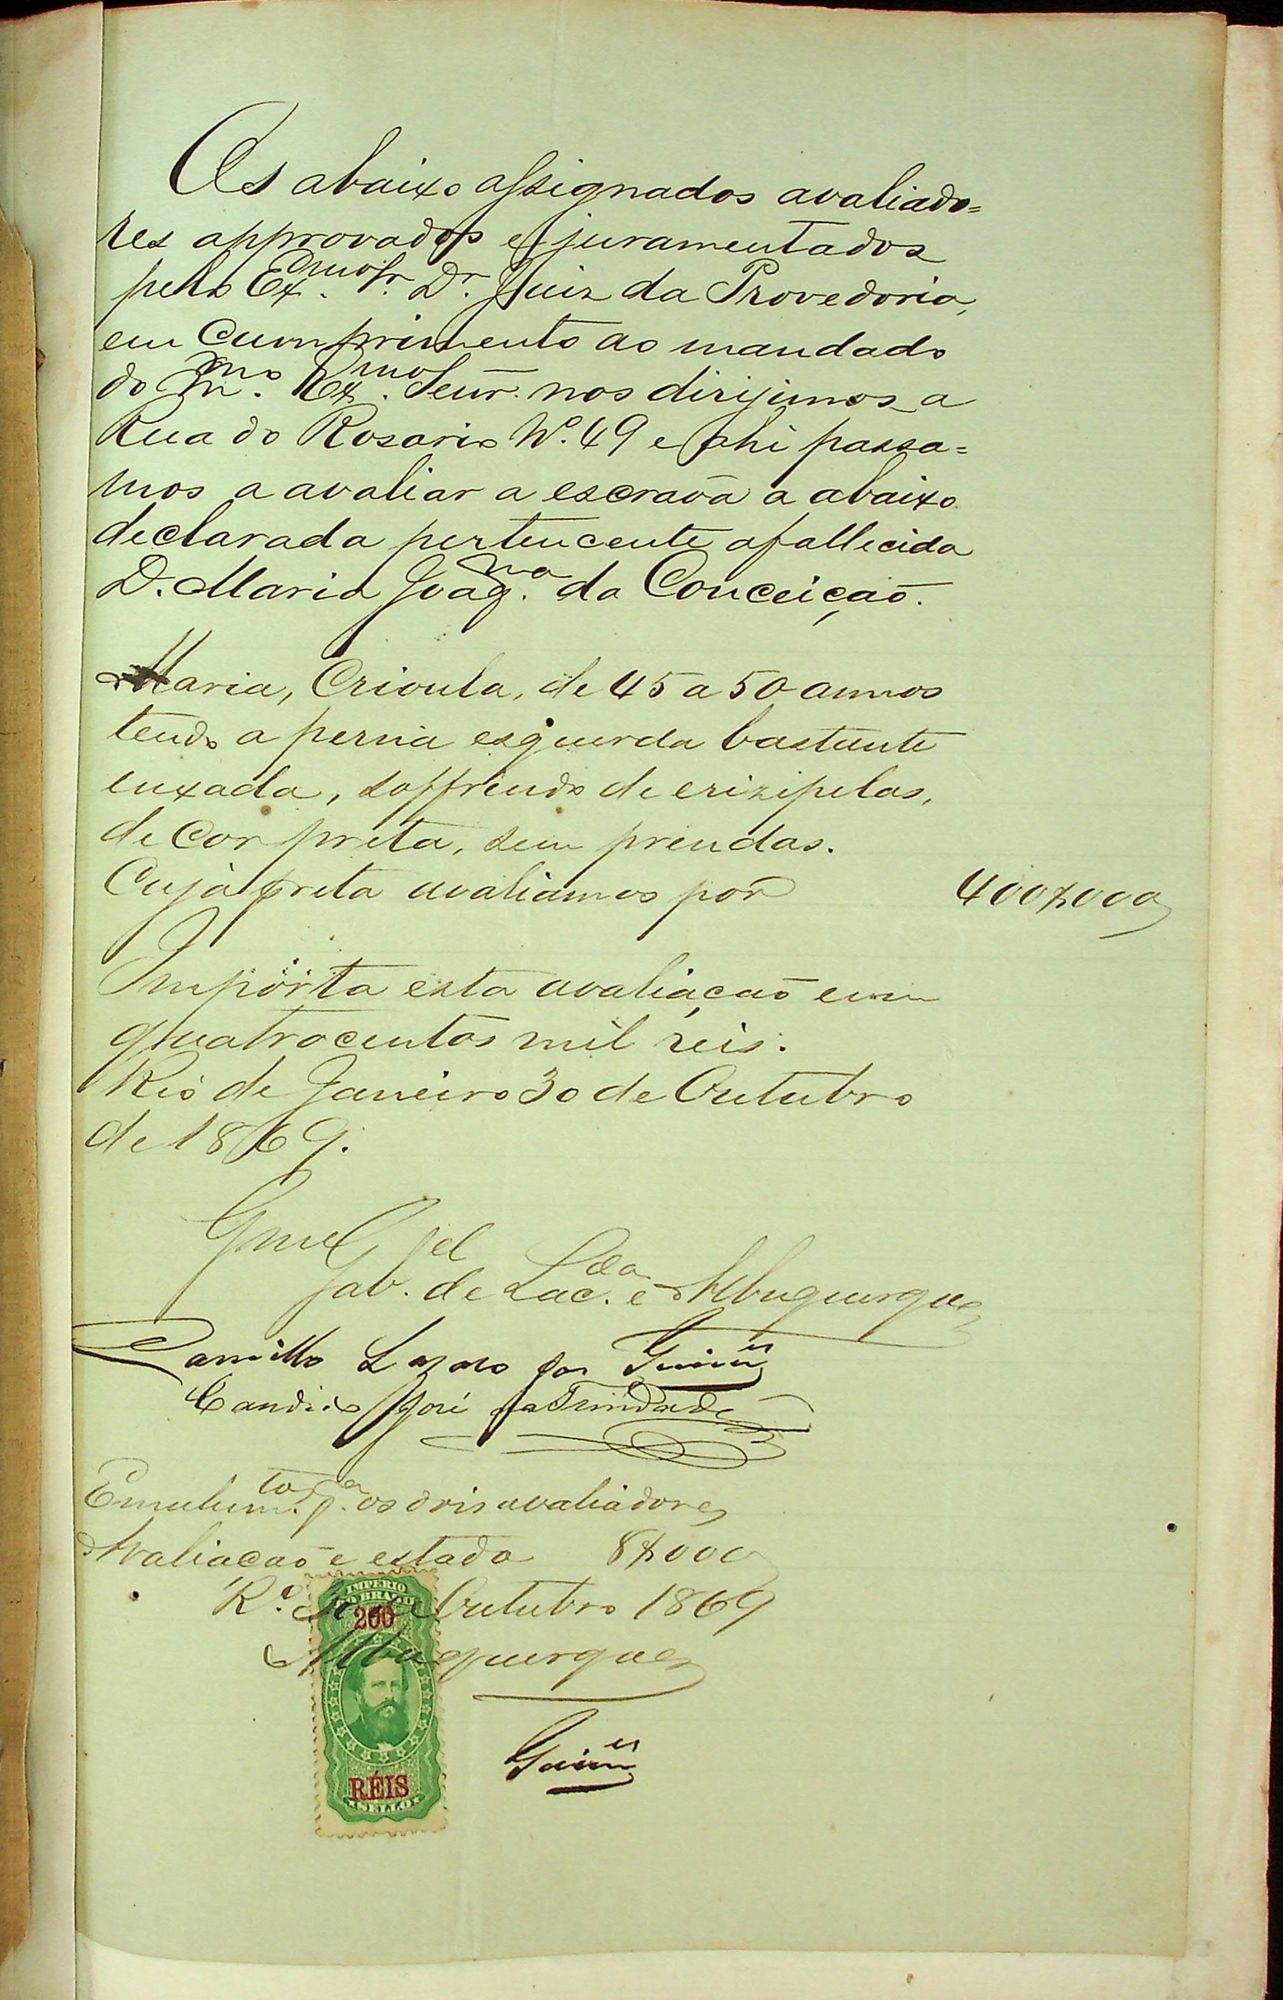 Os abaixo assignados avaliado=
res approvados e juramentados
pelo Exmo. Sr. Dr. Juiz da Provedoria,
em cumprimento ao mandado
do mmo. Exmo. Senr. nos dirijimos a
Rua do Rosario No. 49 e ahi passa=
mos a avaliar a escrava a abaixo
declarada pertencente a fallecida
D. Maria Joaqna. da Conceição.
Maria, Crioula, de 45 a 50 annos
tendo a perna esquerda bastante
enxada, soffrendo de erizipelas,
de Cor preta, sem prendas.
Cuja preta avaliamos por 400$000
Importa esta avaliação em
quatrocentos mil reis.
Rio de Janeiro 30 de Outubro
de 1869.
Gab. de Lacda. e Albuquerque
Camillo Guimes
Candido José da Trindade
Emulumto. pa. os dois avaliadores
Avaliação e estada 8$000
Ro. 30 de Outubro 1869
Albuquerque
Guimes
IMPERIO
DO BRAZIL
200
RÉIS
SELLO